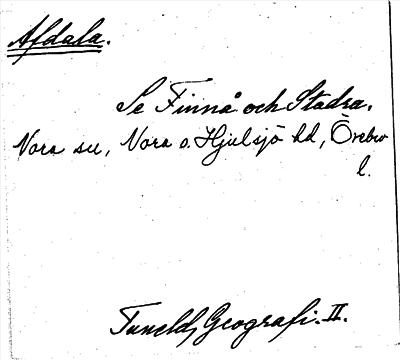 Afdala.
Se Finnå och Stadra.
Nora sn, Nora o. Hjulsjö hd, Örebro
l.
Tuneld, Geografi. II.